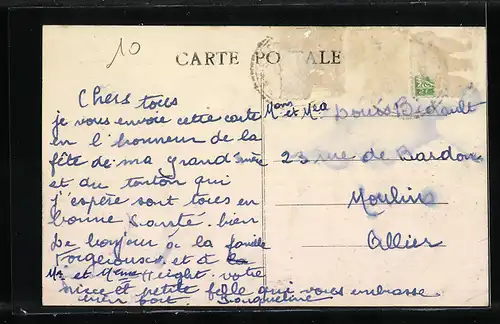 10
CARTE POSTALE
Chers tous
je vous envoie cette carte
en l'honneur de la
fête de ma grand mère
et du tonton qui
j'espère sont tous en
bonne santé. bien
le bonjour à la famille
et à la
Mr et Mme Height. votre
nièce et petite fille qui vous embrasse
bien fort. Jacqueline
Mons et Mme Louis Bidault
23 rue de Bardon
Moulins
Allier